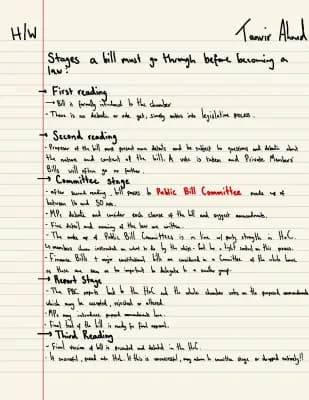 H/W
Tanvir Ahmed
Stages a bill must go through before becoming a
law:
→ First reading
→ Bill is formally introduced to the chamber
- There is no debate or vote yet, simply enters into legislative process.
Second reading
- Proposer of the bill must present main details and be subject to questions and debate about
the nature and content of the bill. A vote is taken and Private Members'
Bills will often go no further.
→ Committee stage
- After second reading, bill passes to Public Bill Committee made up of
between 16 and 50 MPs.
- MPs debate and consider each clause of the bill and suggest amendments.
- Fine detail and meaning of the law are written.
- The make up of Public Bill Committees is in line w/ party strength in HoC.
so members often instructed on what to do by the whips - land be a tight control on this process.
- Finance Bills + major constitutional bills are considered in a Committee of the whole house
as these are seen as too important to delegate to a smaller group.
→ Report Stage
- The PBC reports back to the HoC and the whole chamber votes on the proposed amendments
which may be accepted, rejected or altered.
- MPs may introduce proposed amendments here.
- Final text of the bill is ready for final approval.
→ Third Reading
- Final version of bill is presented and debated in the HoC.
- If successful, passed onto HoL. If this is unsuccessful, may return to committee stage or dropped entirely!!